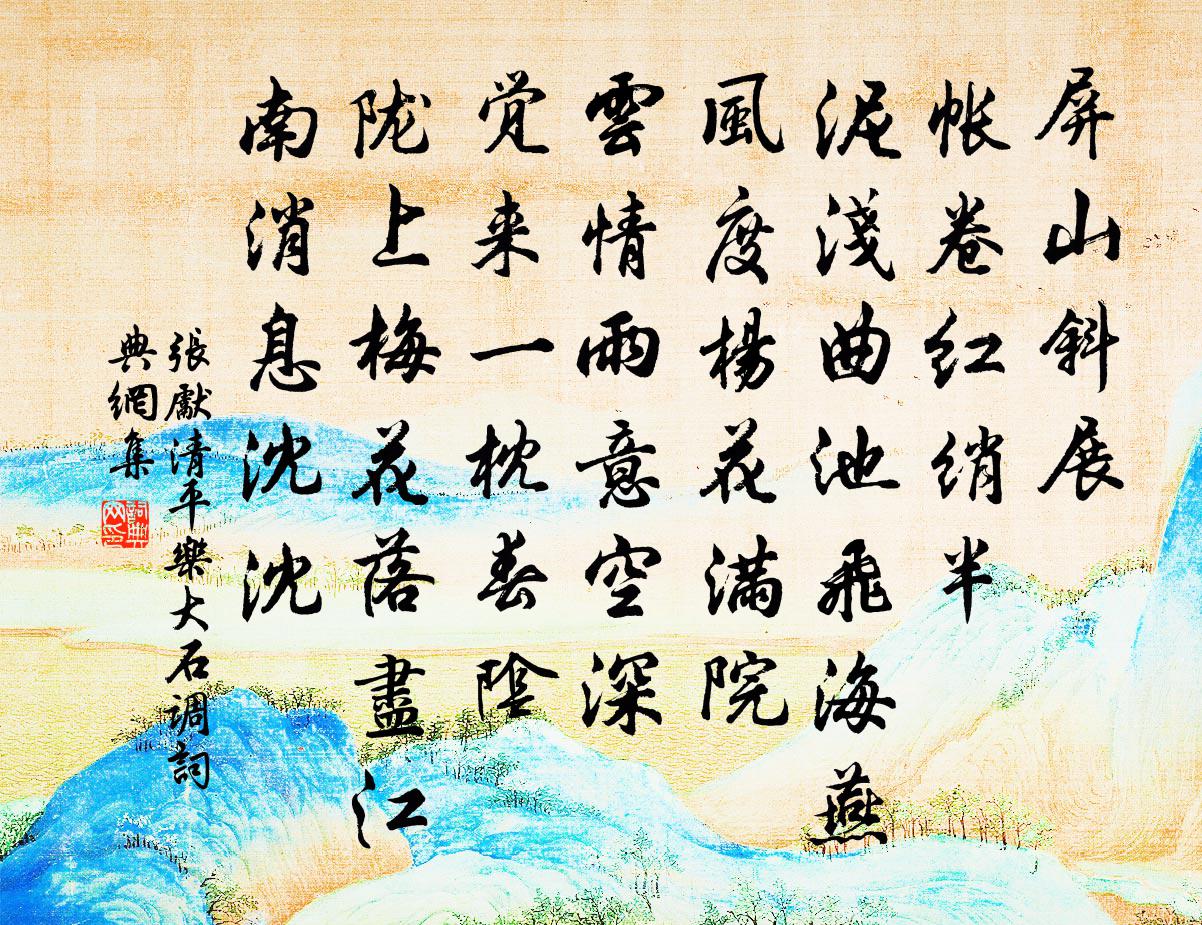 屏山斜展
帐卷红绡半
泥淺曲池飛海燕
風度楊花满院
雲情雨意空深
觉来一枕春陰
陇上梅花落盡江
南消息沈沈
張獻清平樂大石调詞
典網集
詞典网印